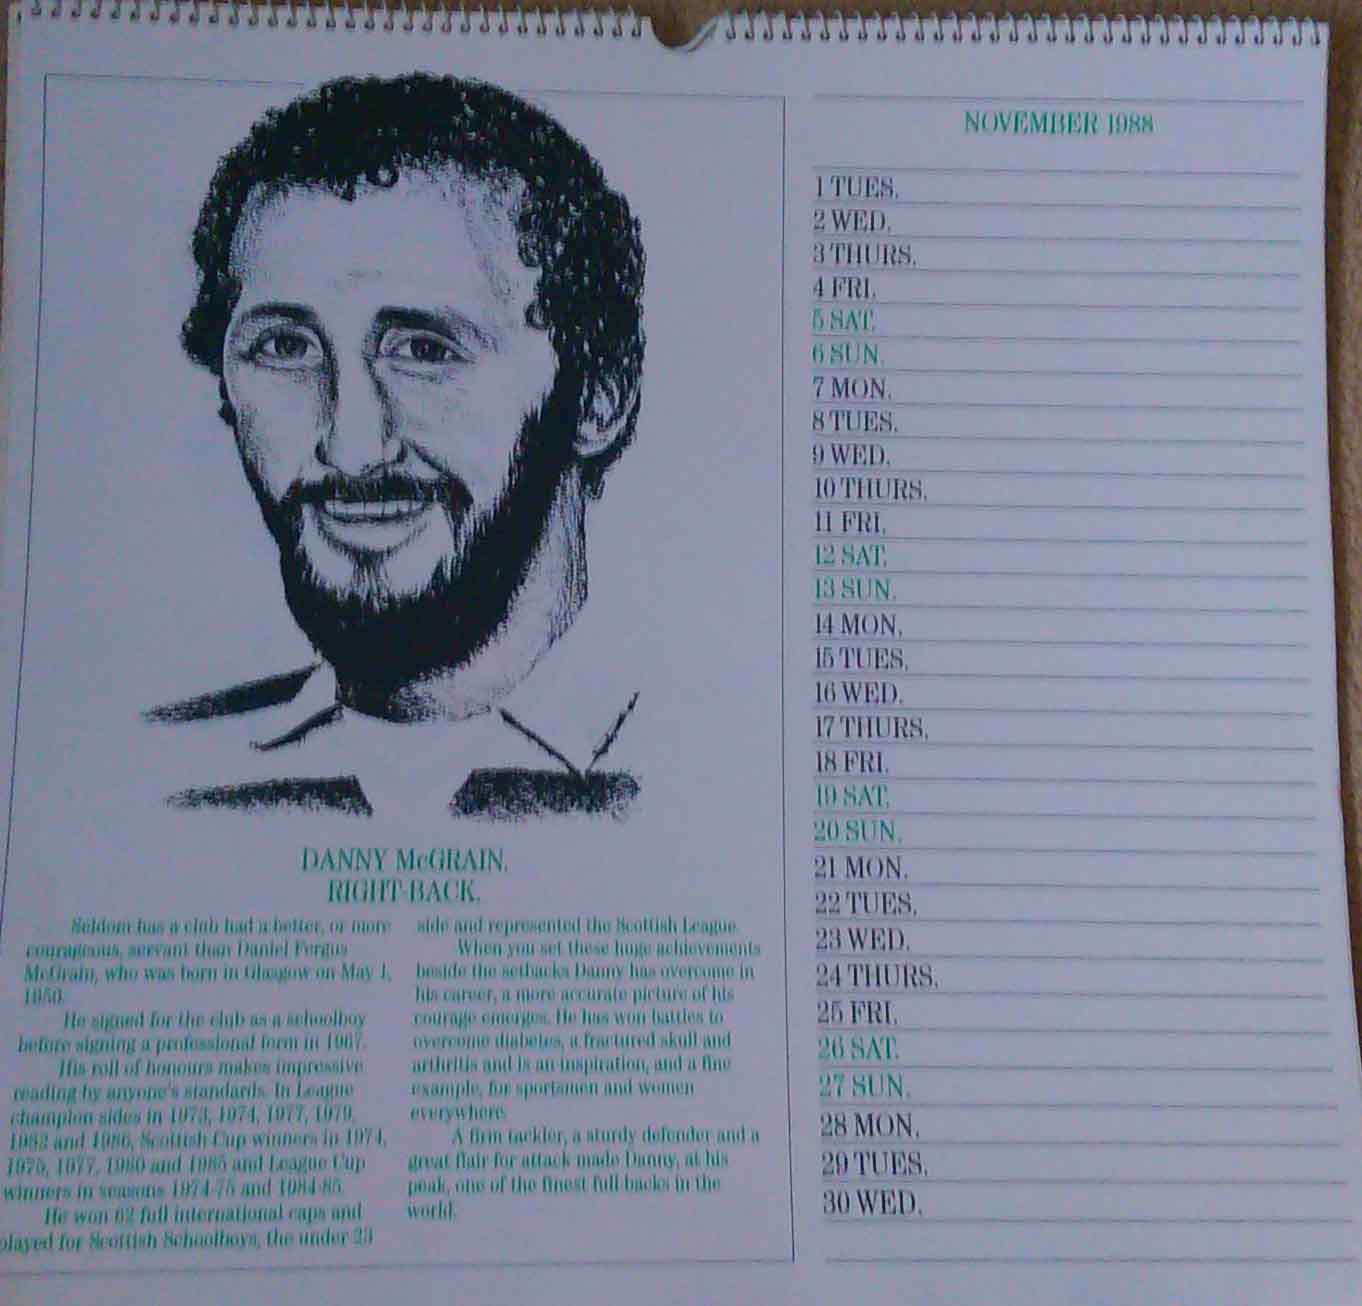 DANNY McGRAIN.
RIGHT-BACK.
Seldom has a club had a better, or more
courageous, servant than Daniel Fergus
McGrain, who was born in Glasgow on May 1,
1950.
He signed for the club as a schoolboy
before signing a professional form in 1967.
His roll of honours makes impressive
reading by anyone's standards. In League
champion sides in 1973, 1974, 1977, 1979,
1982 and 1986, Scottish Cup winners in 1974,
1975, 1977, 1980 and 1985 and League Cup
winners in seasons 1974-75 and 1984-85.
He won 62 full international caps and
played for Scottish Schoolboys, the under 23
side and represented the Scottish League.
When you set these huge achievements
beside the setbacks Danny has overcome in
his career, a more accurate picture of his
courage emerges. He has won battles to
overcome diabetes, a fractured skull and
arthritis and is an inspiration, and a fine
example, for sportsmen and women
everywhere.
A firm tackler, a sturdy defender and a
great flair for attack made Danny, at his
peak, one of the finest full-backs in the
world.
NOVEMBER 1988
1 TUES.
2 WED.
3 THURS.
4 FRI.
5 SAT.
6 SUN.
7 MON.
8 TUES.
9 WED.
10 THURS.
11 FRI.
12 SAT.
13 SUN.
14 MON.
15 TUES.
16 WED.
17 THURS.
18 FRI.
19 SAT.
20 SUN.
21 MON.
22 TUES.
23 WED.
24 THURS.
25 FRI.
26 SAT.
27 SUN.
28 MON.
29 TUES.
30 WED.